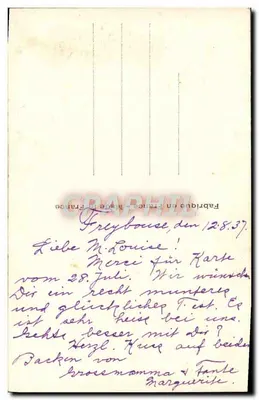 Fabriqué en France
Freybouse, den 12.8.37.
Liebe M. Louise!
Merci für Karte
vom 28. Juli. Wir wünschen
Dir ein recht munteres
und glückliches Fest. Es
ist sehr heiss bei uns.
Gehts besser mit Dir?
Herzl. Küsse auf beiden
Backen von
Grossmamma & Tante
Marguerite.